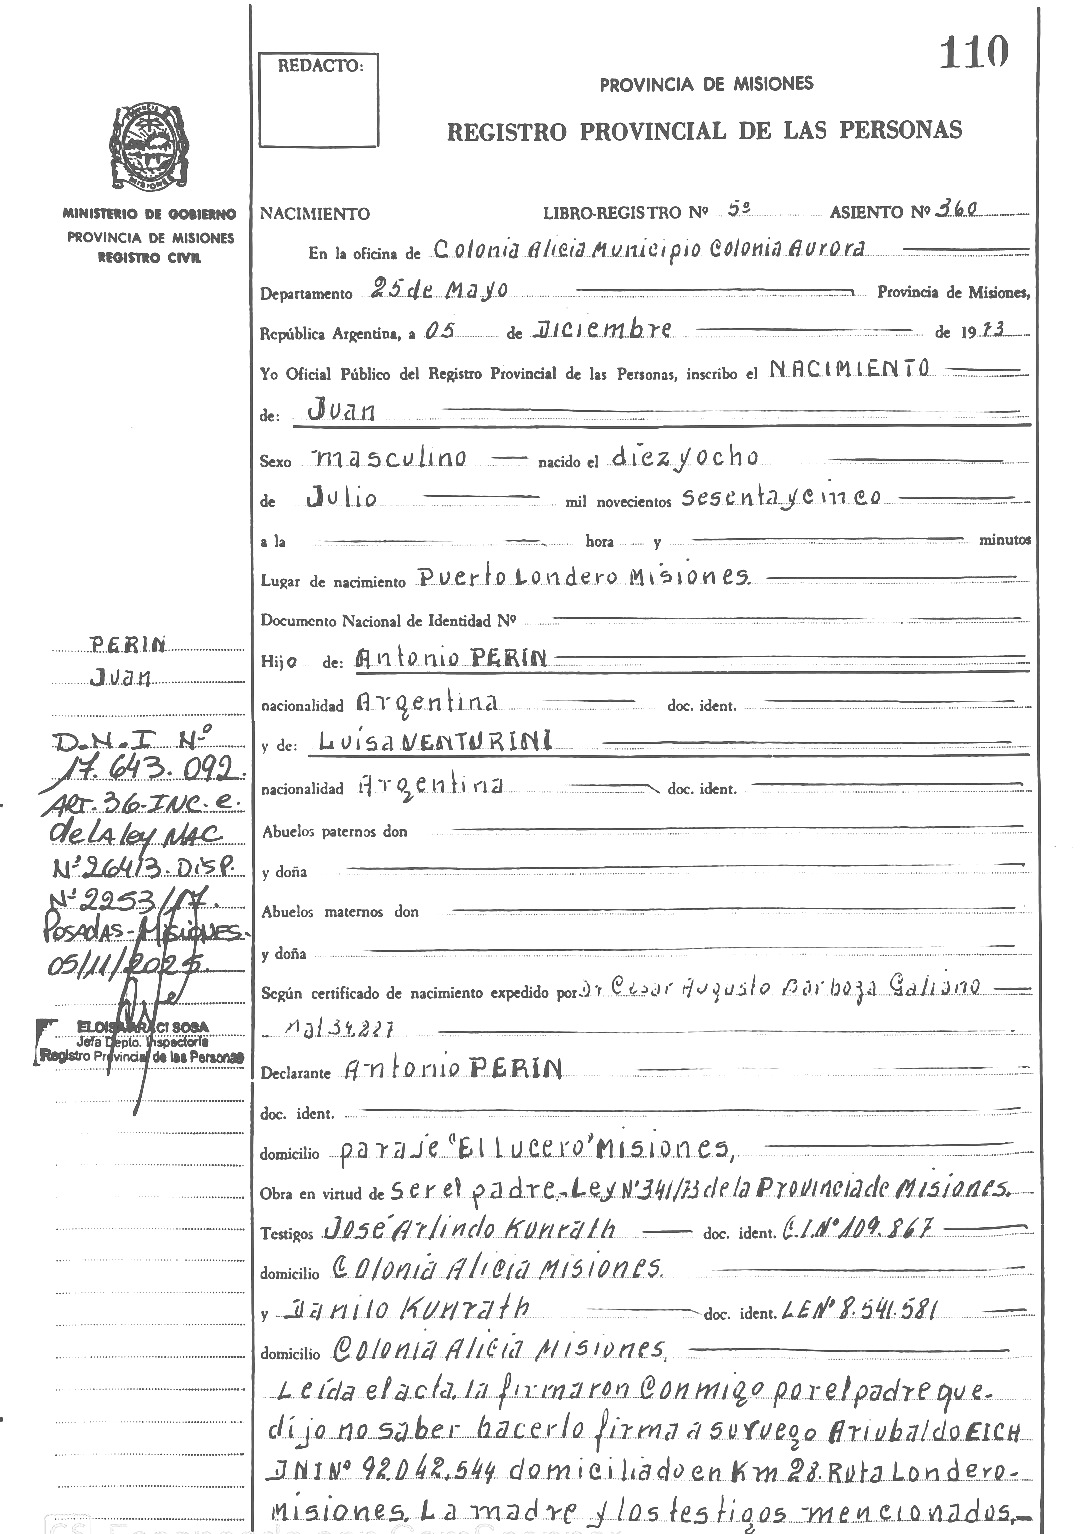 110
REDACTO:
PROVINCIA DE MISIONES
REGISTRO PROVINCIAL DE LAS PERSONAS
MINISTERIO DE GOBIERNO
PROVINCIA DE MISIONES
REGISTRO CIVIL
NACIMIENTO LIBRO-REGISTRO Nº 5º ASIENTO Nº 360
En la oficina de Colonia Alicia Municipio Colonia Aurora
Departamento 25 de Mayo Provincia de Misiones,
República Argentina, a 05 de Diciembre de 1973
Yo Oficial Público del Registro Provincial de las Personas, inscribo el NACIMIENTO
de: Juan
Sexo masculino nacido el diez y ocho
de Julio mil novecientos sesenta y cinco
a la hora y minutos
Lugar de nacimiento Puerto Londero Misiones.
Documento Nacional de Identidad Nº
Hijo de: Antonio PERIN
nacionalidad Argentina doc. ident.
y de: Luisa VENTURINI
nacionalidad Argentina doc. ident.
Abuelos paternos don
y doña
Abuelos maternos don
y doña
Según certificado de nacimiento expedido por Dr Cesar Augusto Barboza Galiano
34.227
Declarante Antonio PERIN
doc. ident.
domicilio paraje "El Lucero" Misiones,
Obra en virtud de ser el padre.- Ley Nº 341/73 de la Provincia de Misiones.
Testigos José Arlindo Kunrath doc. ident. C.I.Nº 109.867
domicilio Colonia Alicia Misiones.
y Danilo Kunrath doc. ident. LE Nº 8.541.581
domicilio Colonia Alicia Misiones,
Leída el acta, la firmaron conmigo por el padre que
dijo no saber hacerlo firma a su ruego Ariubaldo EICH
DNI Nº 92.042.544 domiciliado en Km 28. Ruta Londero-
Misiones. La madre y los testigos mencionados.-
PERIN
Juan
D.N.I Nº
17.643.092.
ART. 36-INC. e.
de LA ley NAC
Nº 26413. DISP.
Nº 2253/17.
POSADAS-MISIONES-
05/11/2025.
ELOISA ARACI SOSA
Jefa Depto. Inspectoría
Registro Provincial de las Personas